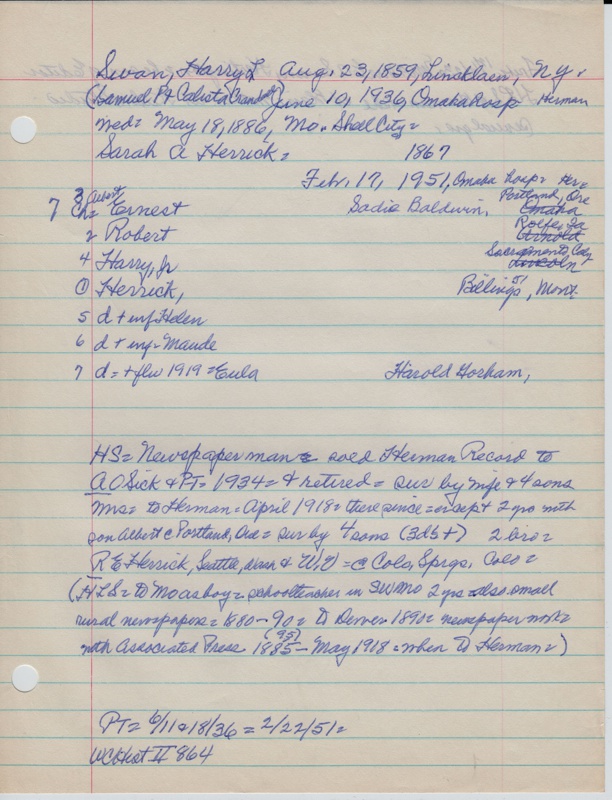 Swan, Harry L Aug. 23, 1859, Lincklaen, N.Y.
(Samuel P + Calista Crandall) June 10, 1936, Omaha hosp Herman
med= May 18, 1886, Mo. Shell City=
Sarah A Herrick= 1867
Febr. 17, 1951, Omaha hosp= Her=
7 Ch= 3 Albert Ernest Sadie Baldwin, Portland, Ore
Omaha
2 Robert Rolfe, Ia
Arnold
4 Harry, Jr Sacramento, Calif
Lincoln
1 Herrick, Billings, Mont. 51
5 d + inf Helen
6 d + inf= Maude
7 d= + flu 1919 = Eula Harold Gorham,
HS= Newspaper man= sold Herman Record to
A O Sick & PT= 1934= & retired= sur by wife & 4 sons
Mrs= to Herman= April 1918= there since= except 2 yrs with
son Albert c Portland, Ore= sur by 4 sons (3 ds +) 2 bro=
R E Herrick, Seattle, Wash & = c Colo, Sprgs, Colo=
(HLS= to Mo as boy= schoolteacher in SW Mo 2 yrs= also small
rural newspapers= 1880-90= to Denver 1890= newspaper work=
with Associated Press 1885 (95) - May 1918= when to Herman=)
PT= 6/11 & 18/36 = 2/22/51=
WCoHist II 864